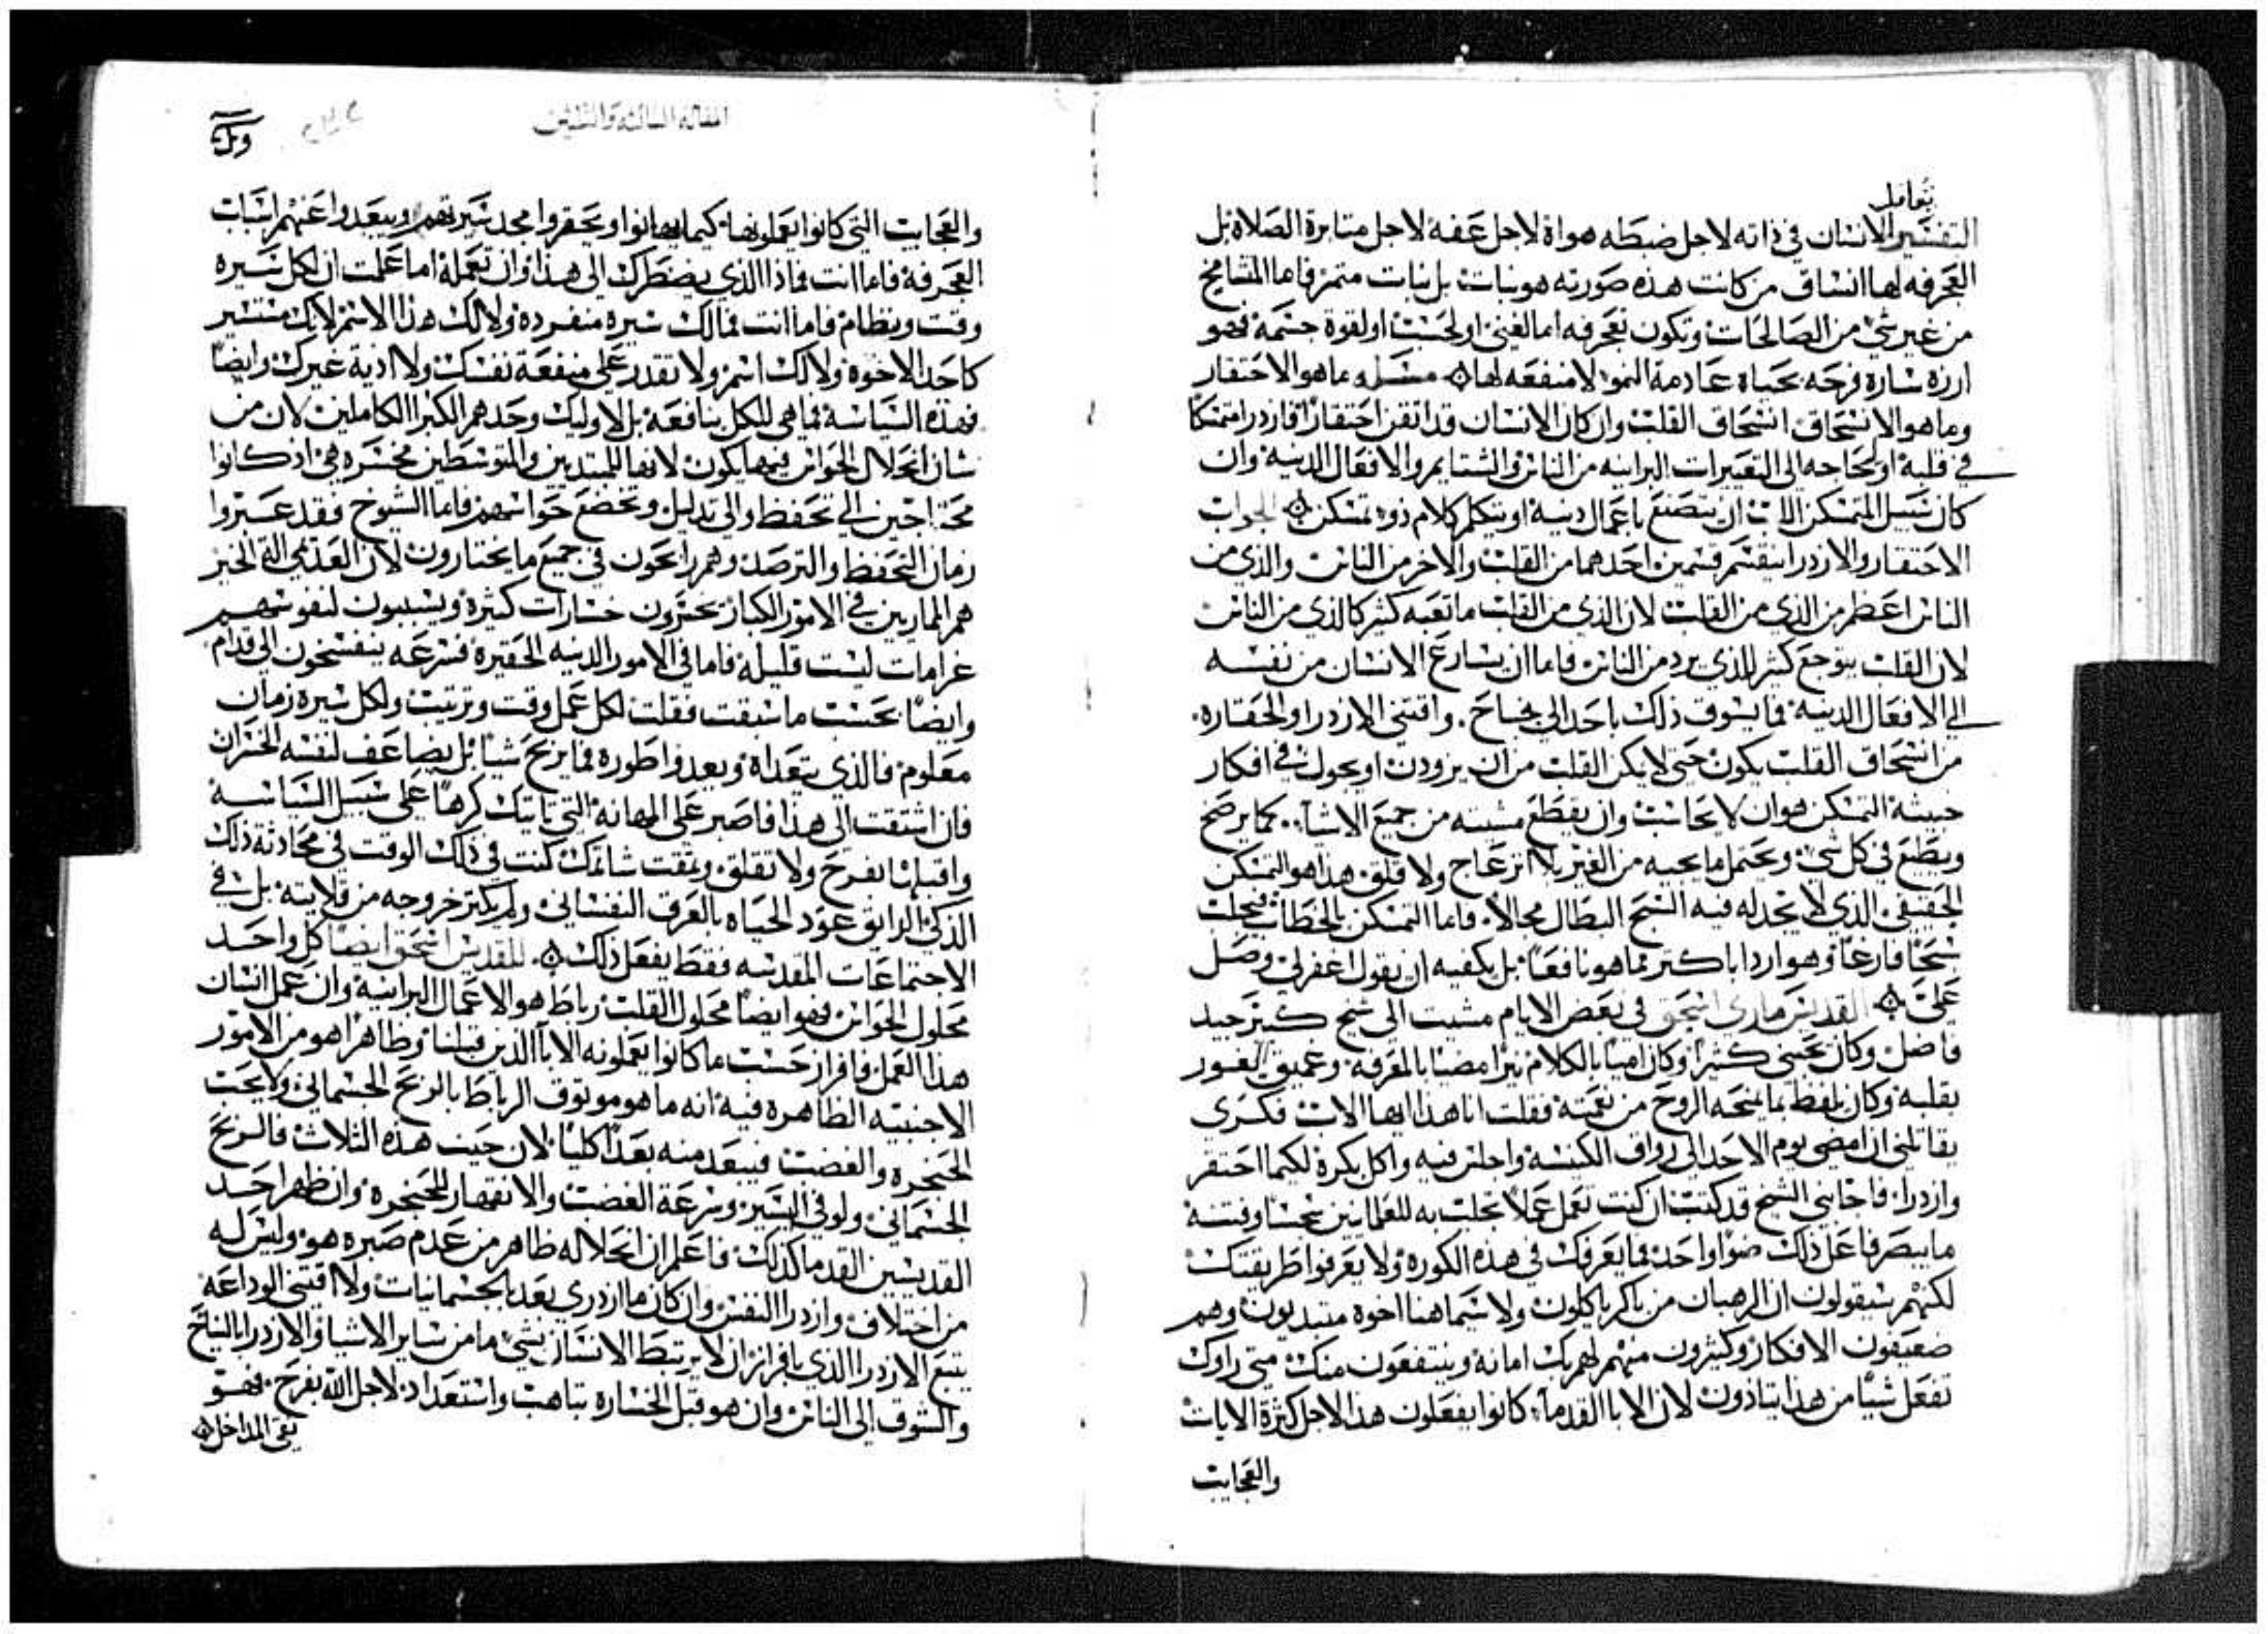 تعامل
التفسير الانسان في ذاته لاجل ضبطه هواه لاجل عفه لاجل مثابرة الصلاة بل
العجرفه لها انساق من كانت هذه صورته هو نبات بل نبات متمر فاما المشامخ
من غير شي من الصالحات وتكون تعجرفه اما لغنى او لحسب او لقوة جسمه فهو
ارزه شاره فرحه بحياه عادمة النمو لا منفعه لها مسله وما هو الاحتقار
وما هو الانسحاق انسحاق القلب وان كان الانسان قد اتقن احتقارا وازدرا متمكنا
في قلبه او لحاجه الى التعييرات البرانيه من الناس والشتايم والافعال الدنيه وان
كان سبيل المتمسكن الاب ان يتصنع باعمال دنيه او يتكلم كلام ذو تمسكن الجواب
الاحتقار والازدرا ينقسم قسمين احدهما من القلب والاخر من الناس والذي من
الناس اعظم من الذي من القلب لان الذي من القلب ما تعبه كثير كالذي من الناس
لان القلب يتوجع كثير للذي يرد من الناس فاما ان يسارع الانسان من نفسه
الى الافعال الدنيه فما يسوق ذلك باحد الى نجاح. واقتني الازدرا والحقاره.
من انسحاق القلب يكون حتى لا يكن القلب من ان يزودن او يجول في افكار
خبيثة التمسكن هو ان لا يحاسب وان يقطع مشيته من جميع الاشيا.. كما يرضخ
ويطيع في كل شي ويحتمل ما يجيه من الغير بلا انزعاج ولا قلق هذا هو التمسكن
الحقيقي الذي لا يجد له فيه السبح البطال مجالا. فاما التمسكن بالخطاب فيجلب
سبحا فارغا وهو ارد ابا كثير مما هو نافعا. بل يكفيه ان يقول اغفر لي وصل
علي القديس ماري اسحق في بعض الايام مشيت الى شيخ كبير جيد
فاضل وكان يحبني كثيرا وكان اميا بالكلام نيرا مضيا بالمعرفة وعميق الغور
بقلبه وكان يلفظ بما يمنحه الروح من نعمته فقلت انا هذا ايها الاب فكري
يقاتلني ان امضي يوم الاحد الى رواق الكنيسه واجلس فيه واكل بكرة لكيما احتقر
وازدرا فاجابني الشيخ قد كتب ان كنت تعمل عملا يجلب به للعلمانيين سجسا وفتنة
ما يبصر فاعل ذلك ضوا واحد فما يعرفك في هذه الكورة ولا يعرفوا طريقتك
لكنهم سيقولون ان الرهبان من باكر ياكلون ولا سيما هنا اخوة مبتديون وهم
ضعيفون الافكار وكثيرون منهم لهم بك امانه وينتفعون منك متى راوك
تفعل شيا من هذا يتاذون لان الابا القدما كانوا يفعلون هذا لاجل كثرة الايات
والعجايب
المقالة الثالثة والثلثين
والعجايب التي كانوا يعملونها كيما يهانوا ويحقروا مجد سيرتهم ويبعدوا عنهم اسباب
العجرفة فاما انت فماذا الذي يضطرك الى هذا وان تعمله اما علمت ان لكل سيره
وقت ونظام فاما انت فما لك سيره منفرده ولا لك هذا الاسم لانك منتسير
كاحد الاخوة ولا لك اسم ولا تقدر على منفعة نفسك ولا اذية غيرك وايضا
فهذه السياسة فما هي للكل نافعة بل لاوليك وحدهم الكبرا الكاملين لان من
شان انحلال الحواس فيها يكون لانها للمبتديين والمتوسطين مخسره هي اذ كانوا
محتاجين الى تحفظ والى تدليل وتخضع حواسهم فاما الشيوخ فقد عبروا
زمان التحفظ والترصد وهم رابحون في جميع ما يختارون لان العدمي الة الخير
هم المارين في الامور الكبار يخترون خسارات كثيرة ويسببون لنفوسهم
غرامات ليست قليلة فاما في الامور الدنيه الحقيرة فسرعه ينفسحون الى قدام
وايضا بحسب ما سبقت فقلت لكل عمل وقت وترتيب ولكل سيرة زمان
معلوم فالذي يتعداه ويعدوا طوره فما يربح شيا بل يضاعف لنفسه الخسران
فان اشتقت الى هذا فاصبر على المهانة التي تاتيك كرها على سبيل السياسة
واقبلها بفرح ولا تقلق وتمقت شاتمك كنت في ذلك الوقت في محادثة ذلك
الذكي الرايق عود الحياه بالعرق النفساني ولم يكثر خروجه من قلايته بل في
الاجتماعات المقدسه فقط يفعل ذلك للقديس اسحق ايضا كل واحد
محلول الحواس فهو ايضا محلول القلب رباط هو الاعمال البرانية وان عمل انسان
هذا العمل فافراز حسب ما كانوا يعملونه الابا الذين قبلنا وظاهرا هو من الامور
الاجنبيه الظاهره فيه انه ما هو موثوق الرباط بالربح الجسماني ولا يحب
الحنجره والغضب فيبعد منه بعدا كليا لان حيث هذه الثلاث فالربح
الجسماني ولو في اليسير وسرعة الغضب والانقهار للحنجره وان ظهر احد
القديسين القدما كذلك فاعلم ان انحلاله ظاهر من عدم صبره هو وليس له
من اختلاف وازدرا النفس وان كان ما ازدري بعد بالجسمانيات ولا اقتني الوداعة
يتبع الازدرا الذي بافراز ان لا يرتبط الانسان بشي ما من ساير الاشيا والازدرا بالنياح
والشوق الى الناس وان هو قبل الخساره بتاهب واستعداد لاجل الله بفرح. فهو
نقي المداخل